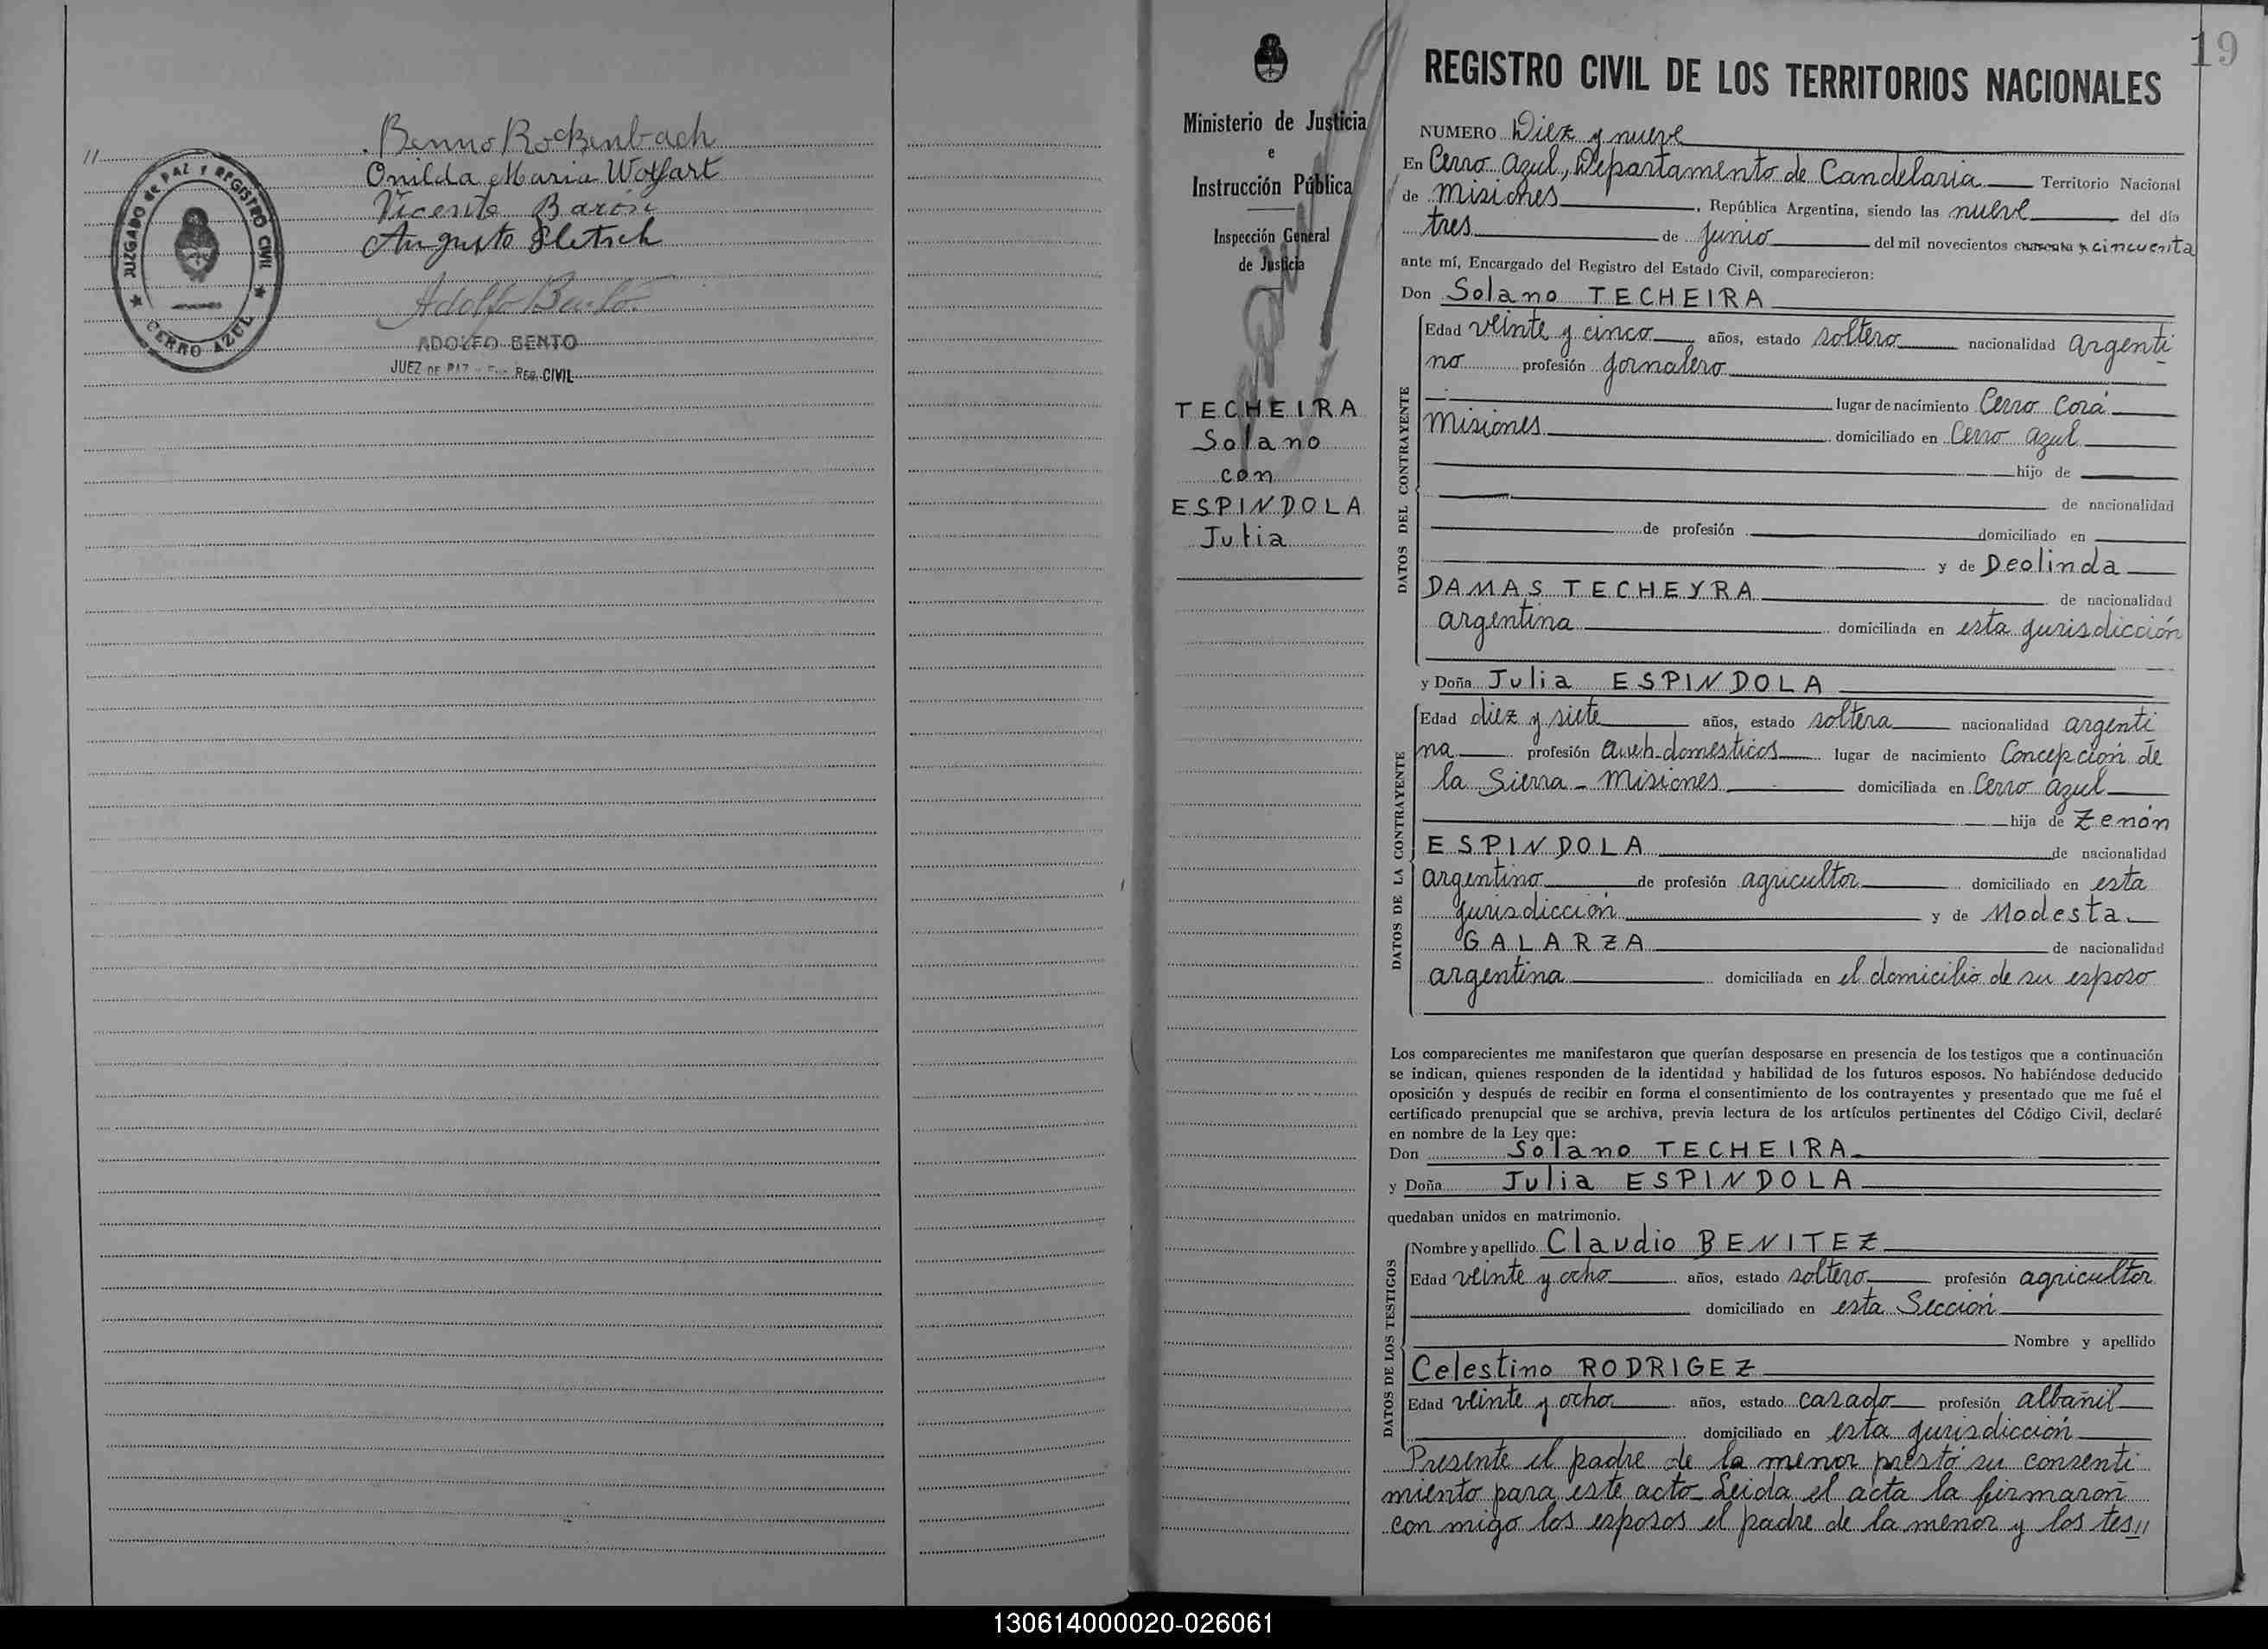 //
Benno Rockenbach
Onilda Maria Wolfart
Vicente Barón
Augusto
JUZGADO de PAZ Y REGISTRO CIVIL
★ CERRO AZUL ★
Adolfo Bento
ADOLFO BENTO
JUEZ DE PAZ REG. CIVIL
Ministerio de Justicia
e
Instrucción Pública
Inspección General
de Justicia
TECHEIRA
Solano
con
ESPINDOLA
Julia
19
REGISTRO CIVIL DE LOS TERRITORIOS NACIONALES
NUMERO Diez y nueve
En Cerro Azul, Departamento de Candelaria Territorio Nacional
de Misiones, República Argentina, siendo las nueve del día
tres de Junio del mil novecientos cuarenta y cincuenta
ante mí, Encargado del Registro del Estado Civil, comparecieron:
Don Solano TECHEIRA
DATOS DEL CONTRAYENTE
Edad veinte y cinco años, estado soltero nacionalidad argenti
no profesión jornalero
lugar de nacimiento Cerro Corá
Misiones domiciliado en Cerro Azul
hijo de
de nacionalidad
de profesión domiciliado en
y de Deolinda
DAMAS TECHEYRA de nacionalidad
argentina domiciliada en esta jurisdicción
y Doña Julia ESPINDOLA
DATOS DE LA CONTRAYENTE
Edad diez y siete años, estado soltera nacionalidad argenti
na profesión queh. domésticos lugar de nacimiento Concepción de
la Sierra - Misiones domiciliada en Cerro Azul
hija de Zenón
ESPINDOLA de nacionalidad
argentino de profesión agricultor domiciliado en esta
jurisdicción y de Modesta
GALARZA de nacionalidad
argentina domiciliada en el domicilio de su esposo
Los comparecientes me manifestaron que querían desposarse en presencia de los testigos que a continuación
se indican, quienes responden de la identidad y habilidad de los futuros esposos. No habiéndose deducido
oposición y después de recibir en forma el consentimiento de los contrayentes y presentado que me fué el
certificado prenupcial que se archiva, previa lectura de los artículos pertinentes del Código Civil, declaré
en nombre de la Ley que:
Don Solano TECHEIRA
y Doña Julia ESPINDOLA
quedaban unidos en matrimonio.
DATOS DE LOS TESTIGOS
Nombre y apellido Claudio BENITEZ
Edad veinte y ocho años, estado soltero profesión agricultor
domiciliado en esta Sección
Nombre y apellido
Celestino RODRIGEZ
Edad veinte y ocho años, estado casado profesión albañil
domiciliado en esta jurisdicción
Presente el padre de la menor prestó su consenti
miento para este acto Leida el acta la firmaron
con migo los esposos el padre de la menor y los tes//
130614000020-026061